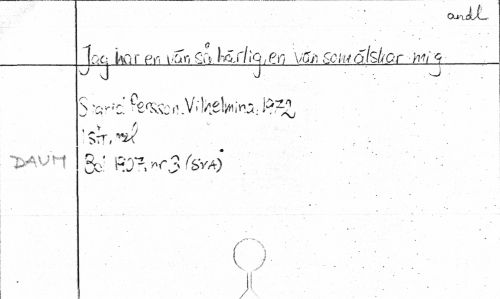 andl
Jag har en vän så härlig, en vän som älskar mig
Sigrid Persson, Vilhelmina, 1972
1 str, mel
DAUM Bd 1907, nr 3 (SVA)